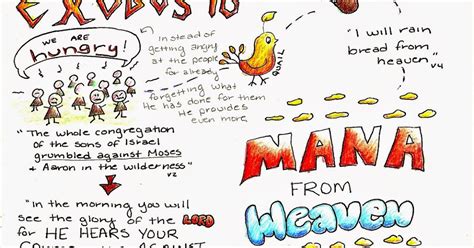 EXODUS 16
WE ARE
hungry!
Instead of
getting angry
at the people
for already
forgetting what
He has done for them
He provides
even more.
QUAIL
"I will rain
bread from
heaven"
v4
"The whole congregation
of the sons of Israel
grumbled against Moses
& Aaron in the wilderness"
v2
"In the morning you will
see the glory of the LORD
for HE HEARS YOUR
MANA
FROM
Heaven